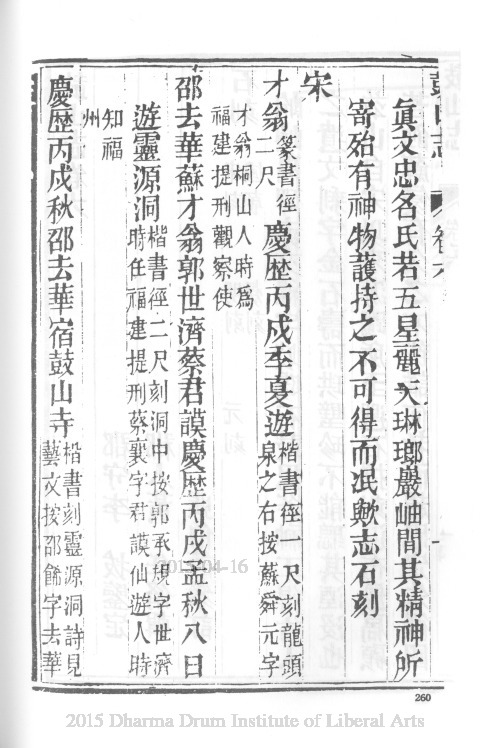 鼓山志 卷六
眞文忠名氏若五星麗天琳瑯巖岫間其精神所
寄殆有神物護持之不可得而泯歟志石刻
宋
才翁篆書徑二尺慶歷丙戌季夏遊楷書徑一尺刻龍頭泉之右按蘇舜元字
才翁桐山人時爲福建提刑觀察使
邵去華蘇才翁郭世濟蔡君謨慶歷丙戌孟秋八日
遊靈源洞楷書徑二尺刻洞中按郭承規字世濟時任福建提刑蔡襄字君謨仙遊人時
知福州
慶歷丙戌秋邵去華宿鼓山寺楷書刻靈源洞詩見藝文按邵飾字去華
04-16
260
2015 Dharma Drum Institute of Liberal Arts